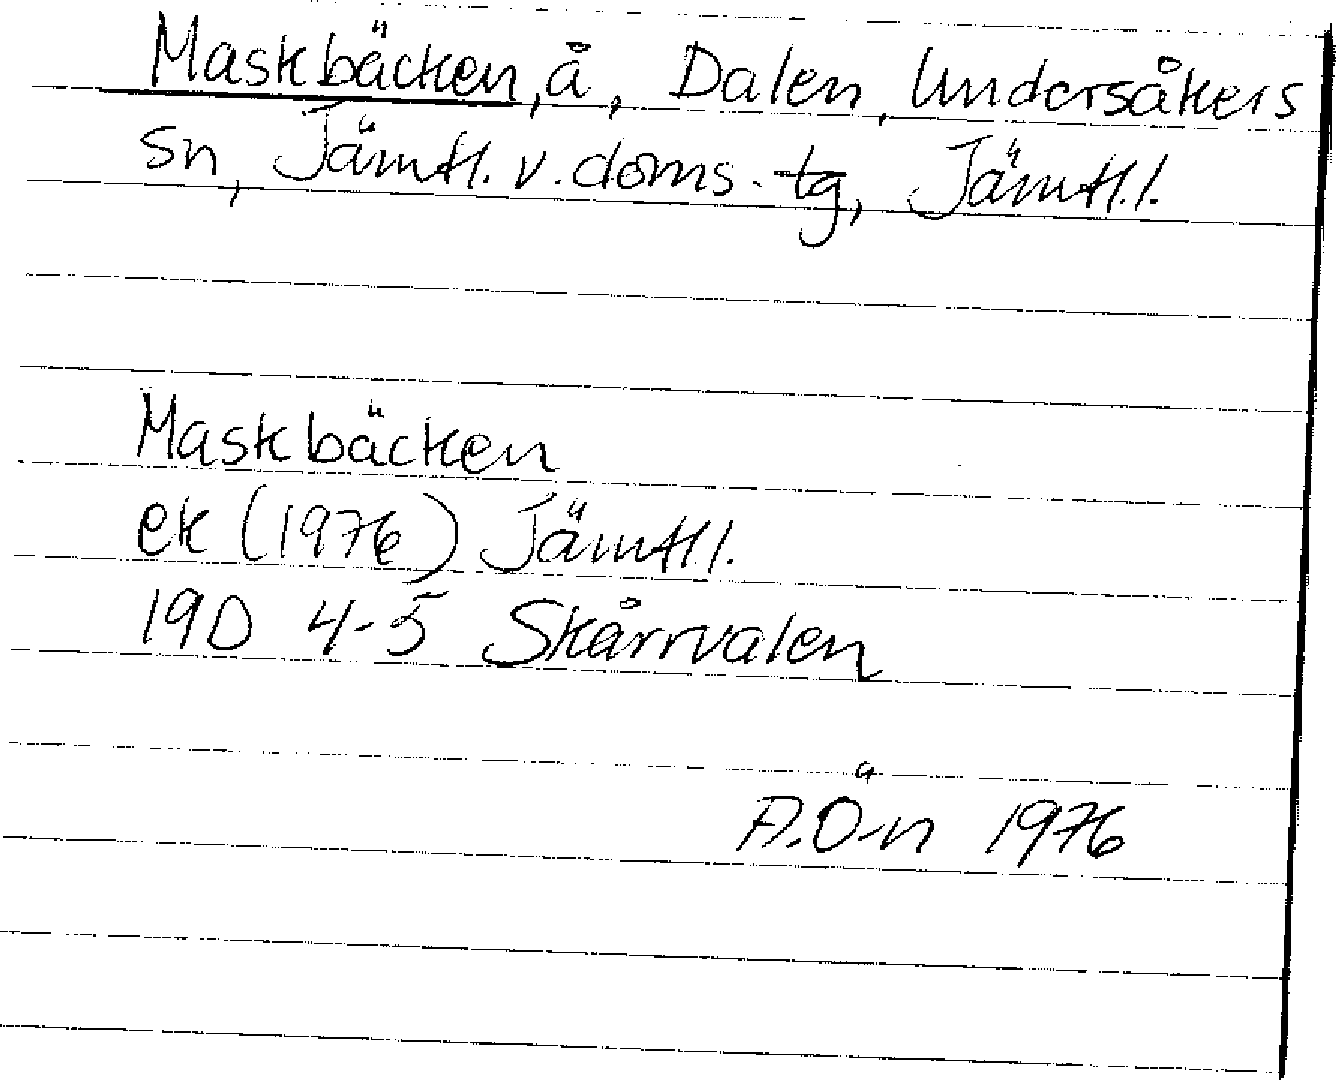 Maskbäcken, å, Dalen, Undersåkers
sn, Jämtl. v. doms.-tg, Jämtl.l.
Maskbäcken
ek (1976) Jämtl l.
19D 4-5 Skårrvalen
A.Ö-n 1976